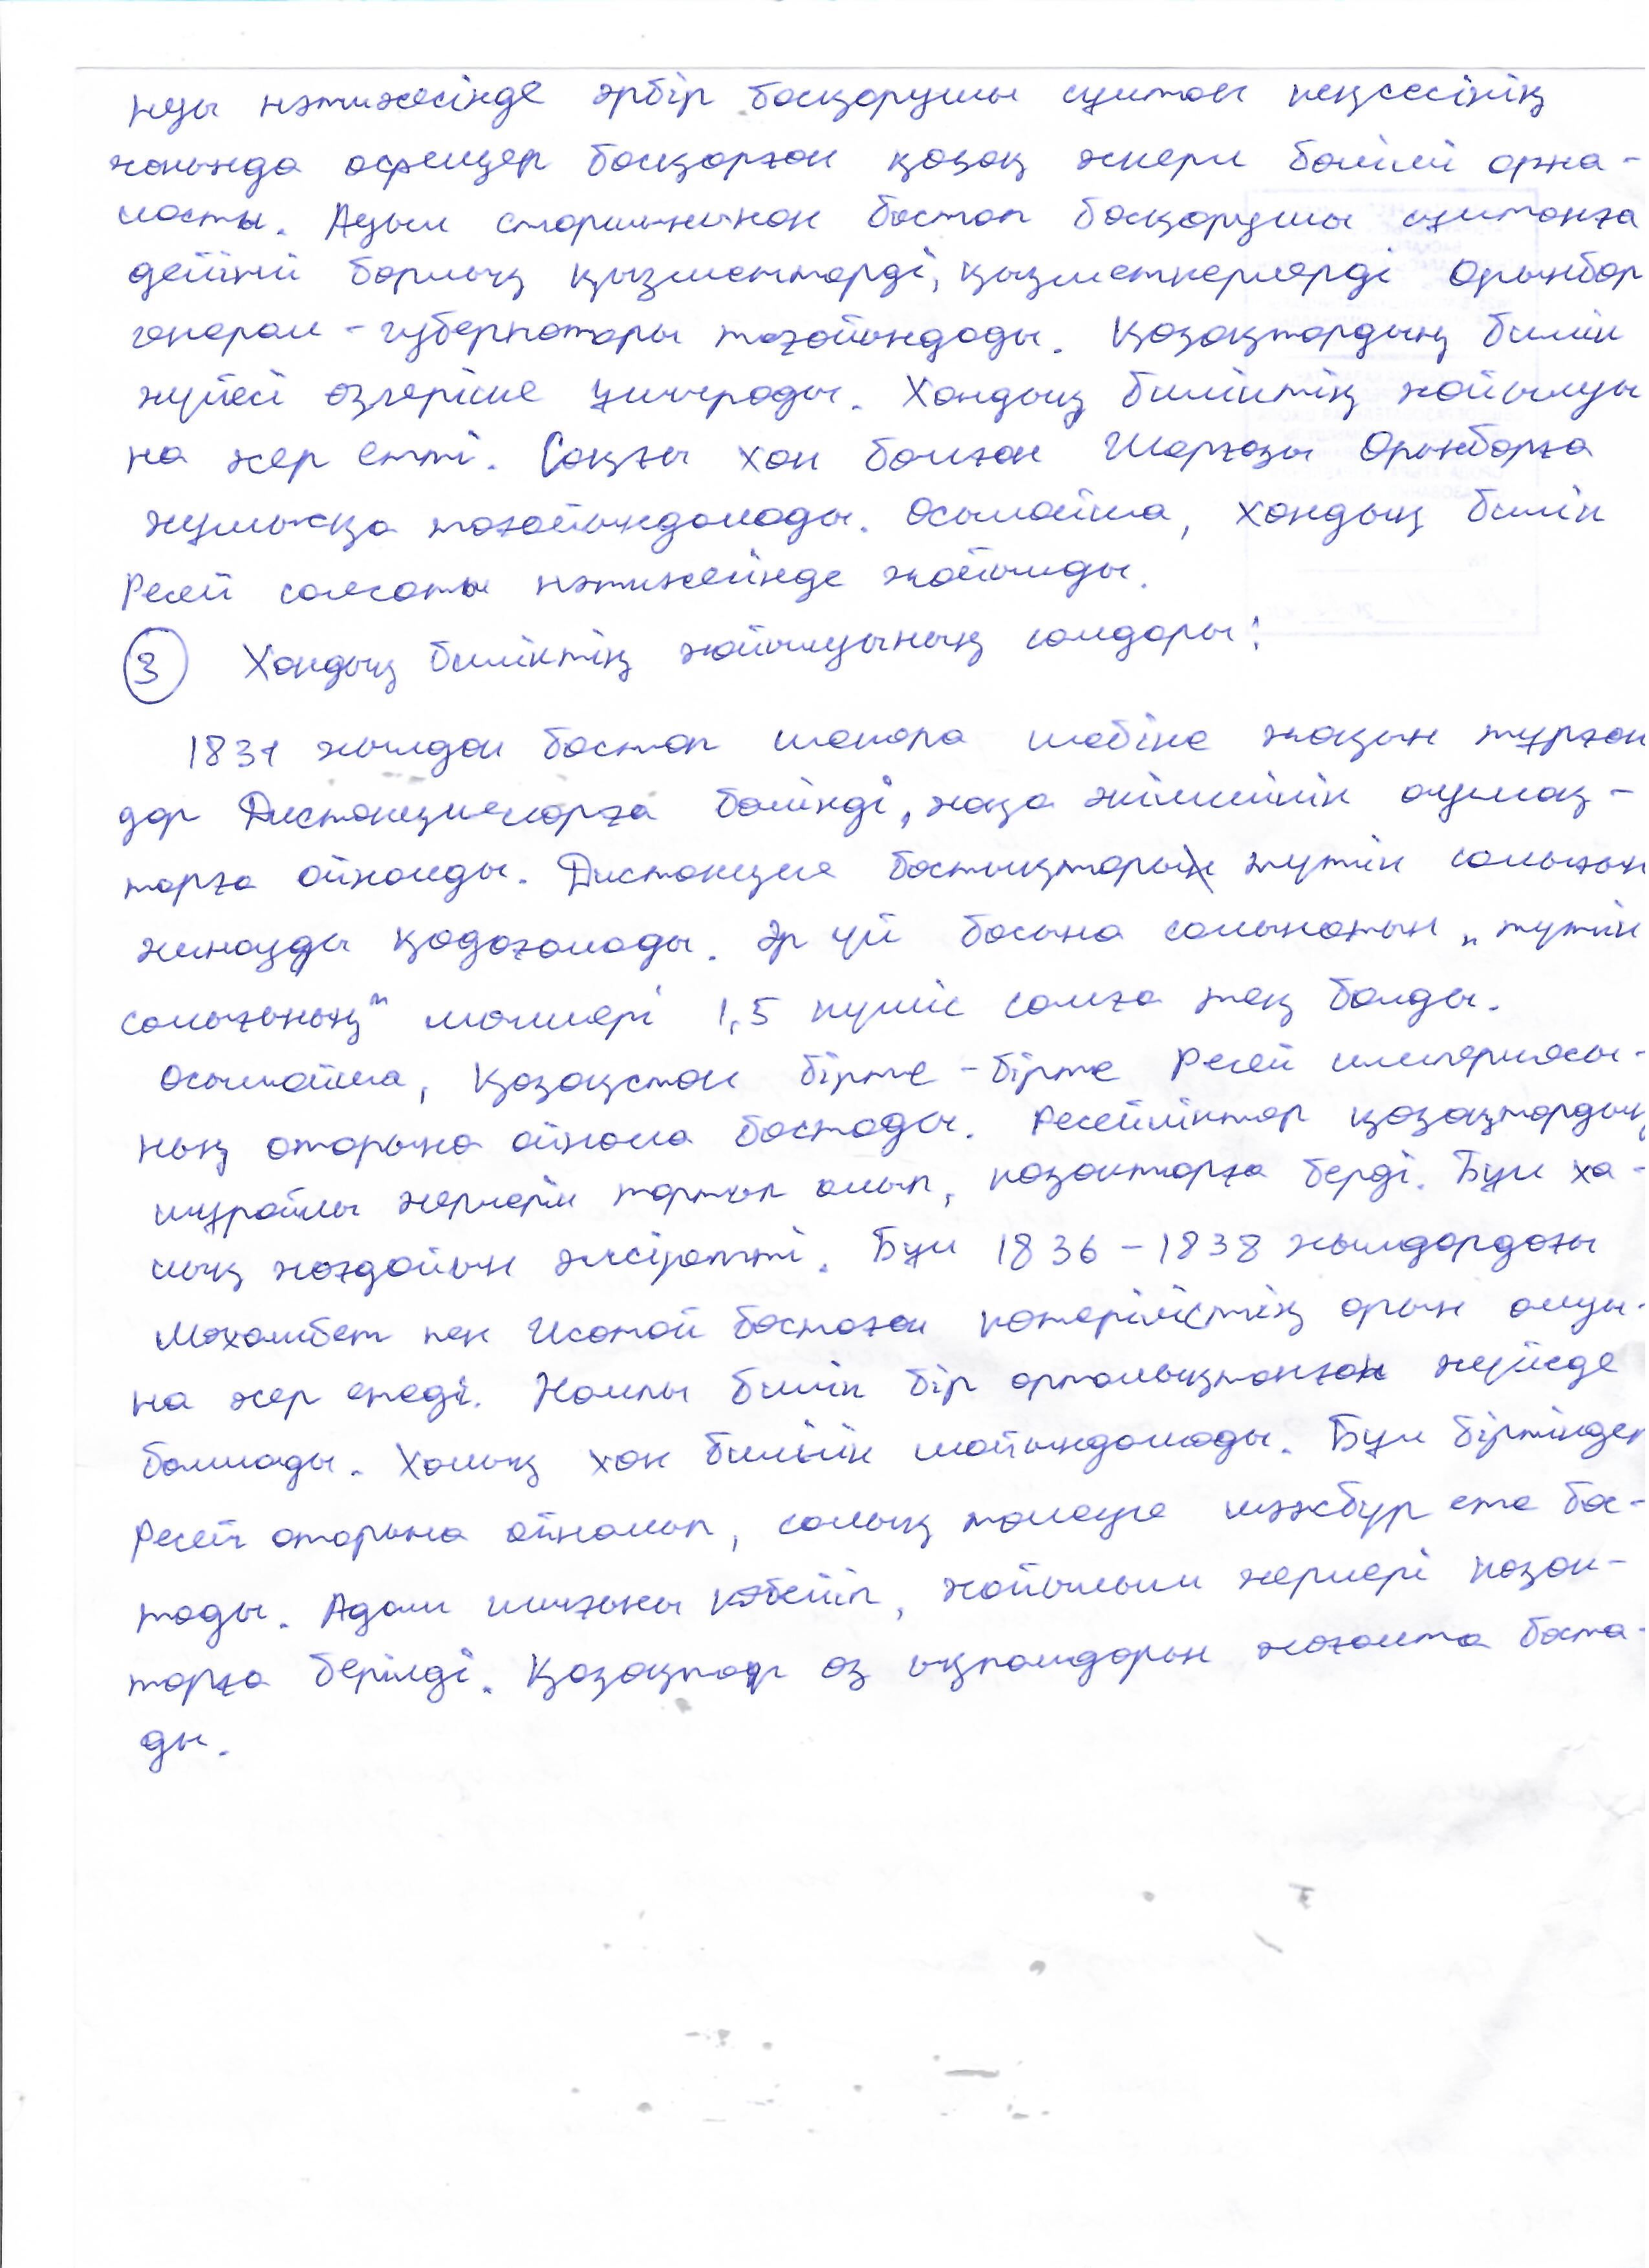 нуы нәтижесінде әрбір басқарушы сұлтан кеңсесінің
жанында офицер басқарған қазақ әскери бөлімі орна-
ласты. Ауыл старшынынан бастап басқарушы сұлтанға
дейінгі барлық қызметтерді, қызметкерлерді Орынбор
генерал-губернаторы тағайындады. Қазақтардың билік
жүйесі өзгеріске ұшырады. Хандық биліктің жойылуы
на әкер етті. Соңғы хан болған Шерғазы Орынборға
жұмысқа тағайындалады. Осылайша, хандық билік
Ресей саясаты нәтижесінде жойылды.
3 Хандық биліктің жойылуының салдары:
1831 жылдан бастап шекара шебіне жақын тұрған
дар Дистанцияларға бөлінді, жаңа әкімшілік аумақ-
тарға айналды. Дистанция бастықтары түтін салығын
жинауды қадағалады. Әр үй басына салынатын „түтін
салығының" мөлшері 1,5 күміс сомға тең болды.
Осылайша, Қазақстан бірте-бірте Ресей империясы-
ның отарына айнала бастады. Ресейліктер қазақтардың
шұрайлы жерлерін тартып алып, казактарға берді. Бұл ха-
лық жағдайын әлсіретті. Бұл 1836-1838 жылдардағы
Махамбет пен Исатай бастаған көтерілістің орын алуы-
на әкер етеді. Жалпы билік бір орталықтанған жүйеде
болмады. Халық хан билігін мойындамады. Бұл біртіндеп
Ресей отарына айналып, салық төлеуге мәжбүр ете бас-
тады. Адам шығыны көбейіп, жайылым жерлері казак-
тарға берілді. Қазақтар өз ықпалдарын жоғалта баста-
ды.